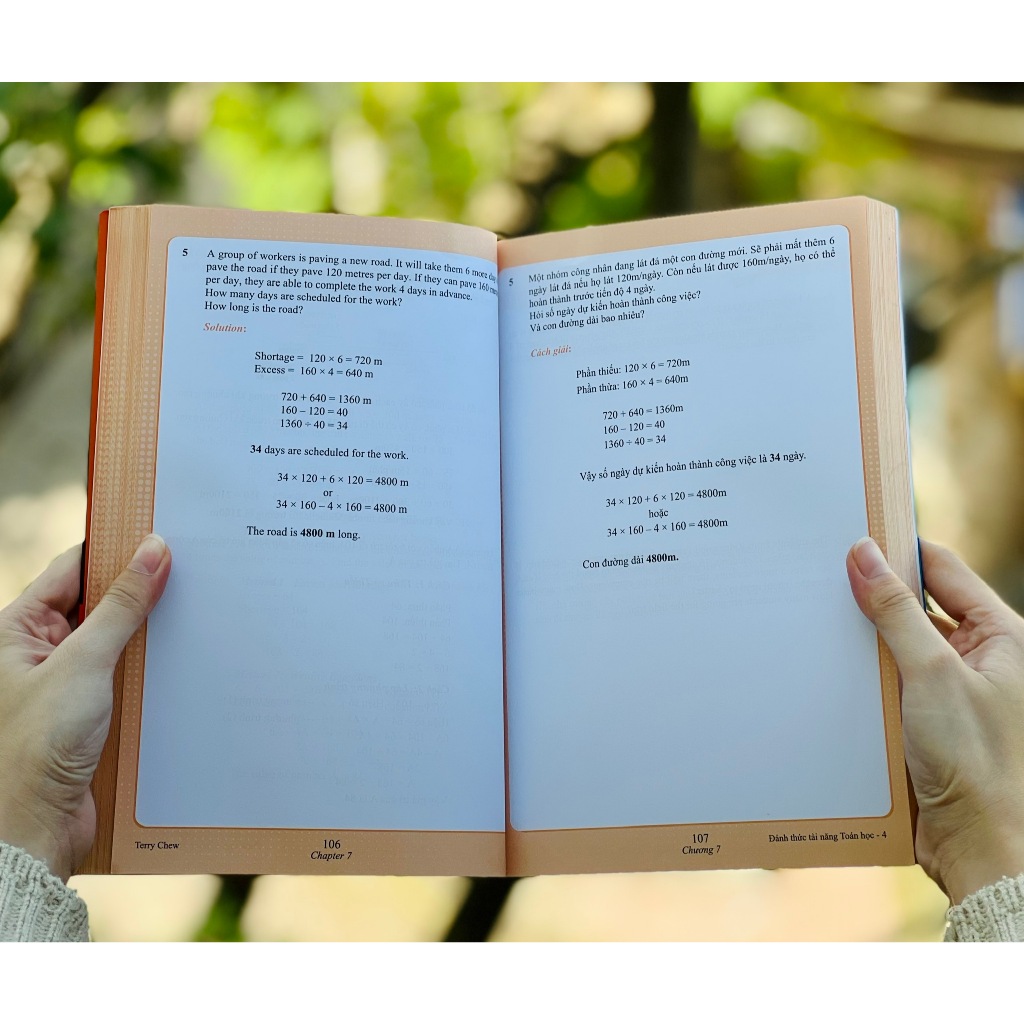 5 A group of workers is paving a new road. It will take them 6 more
pave the road if they pave 120 metres per day. If they can pave 160
per day, they are able to complete the work 4 days in advance.
How many days are scheduled for the work?
How long is the road?
Solution:
Shortage = 120 × 6 = 720 m
Excess = 160 × 4 = 640 m
720 + 640 = 1360 m
160 – 120 = 40
1360 ÷ 40 = 34
34 days are scheduled for the work.
34 × 120 + 6 × 120 = 4800 m
or
34 × 160 – 4 × 160 = 4800 m
The road is 4800 m long.
Terry Chew
106
Chapter 7
5 Một nhóm công nhân đang lát đá một con đường mới. Sẽ phải mất thêm 6
ngày lát đá nếu họ lát 120m/ngày. Còn nếu lát được 160m/ngày, họ có thể
hoàn thành trước tiến độ 4 ngày.
Hỏi số ngày dự kiến hoàn thành công việc?
Và con đường dài bao nhiêu?
Cách giải:
Phần thiếu: 120 × 6 = 720m
Phần thừa: 160 × 4 = 640m
720 + 640 = 1360m
160 – 120 = 40
1360 ÷ 40 = 34
Vậy số ngày dự kiến hoàn thành công việc là 34 ngày.
34 × 120 + 6 × 120 = 4800m
hoặc
34 × 160 – 4 × 160 = 4800m
Con đường dài 4800m.
107
Chương 7
Đánh thức tài năng Toán học - 4